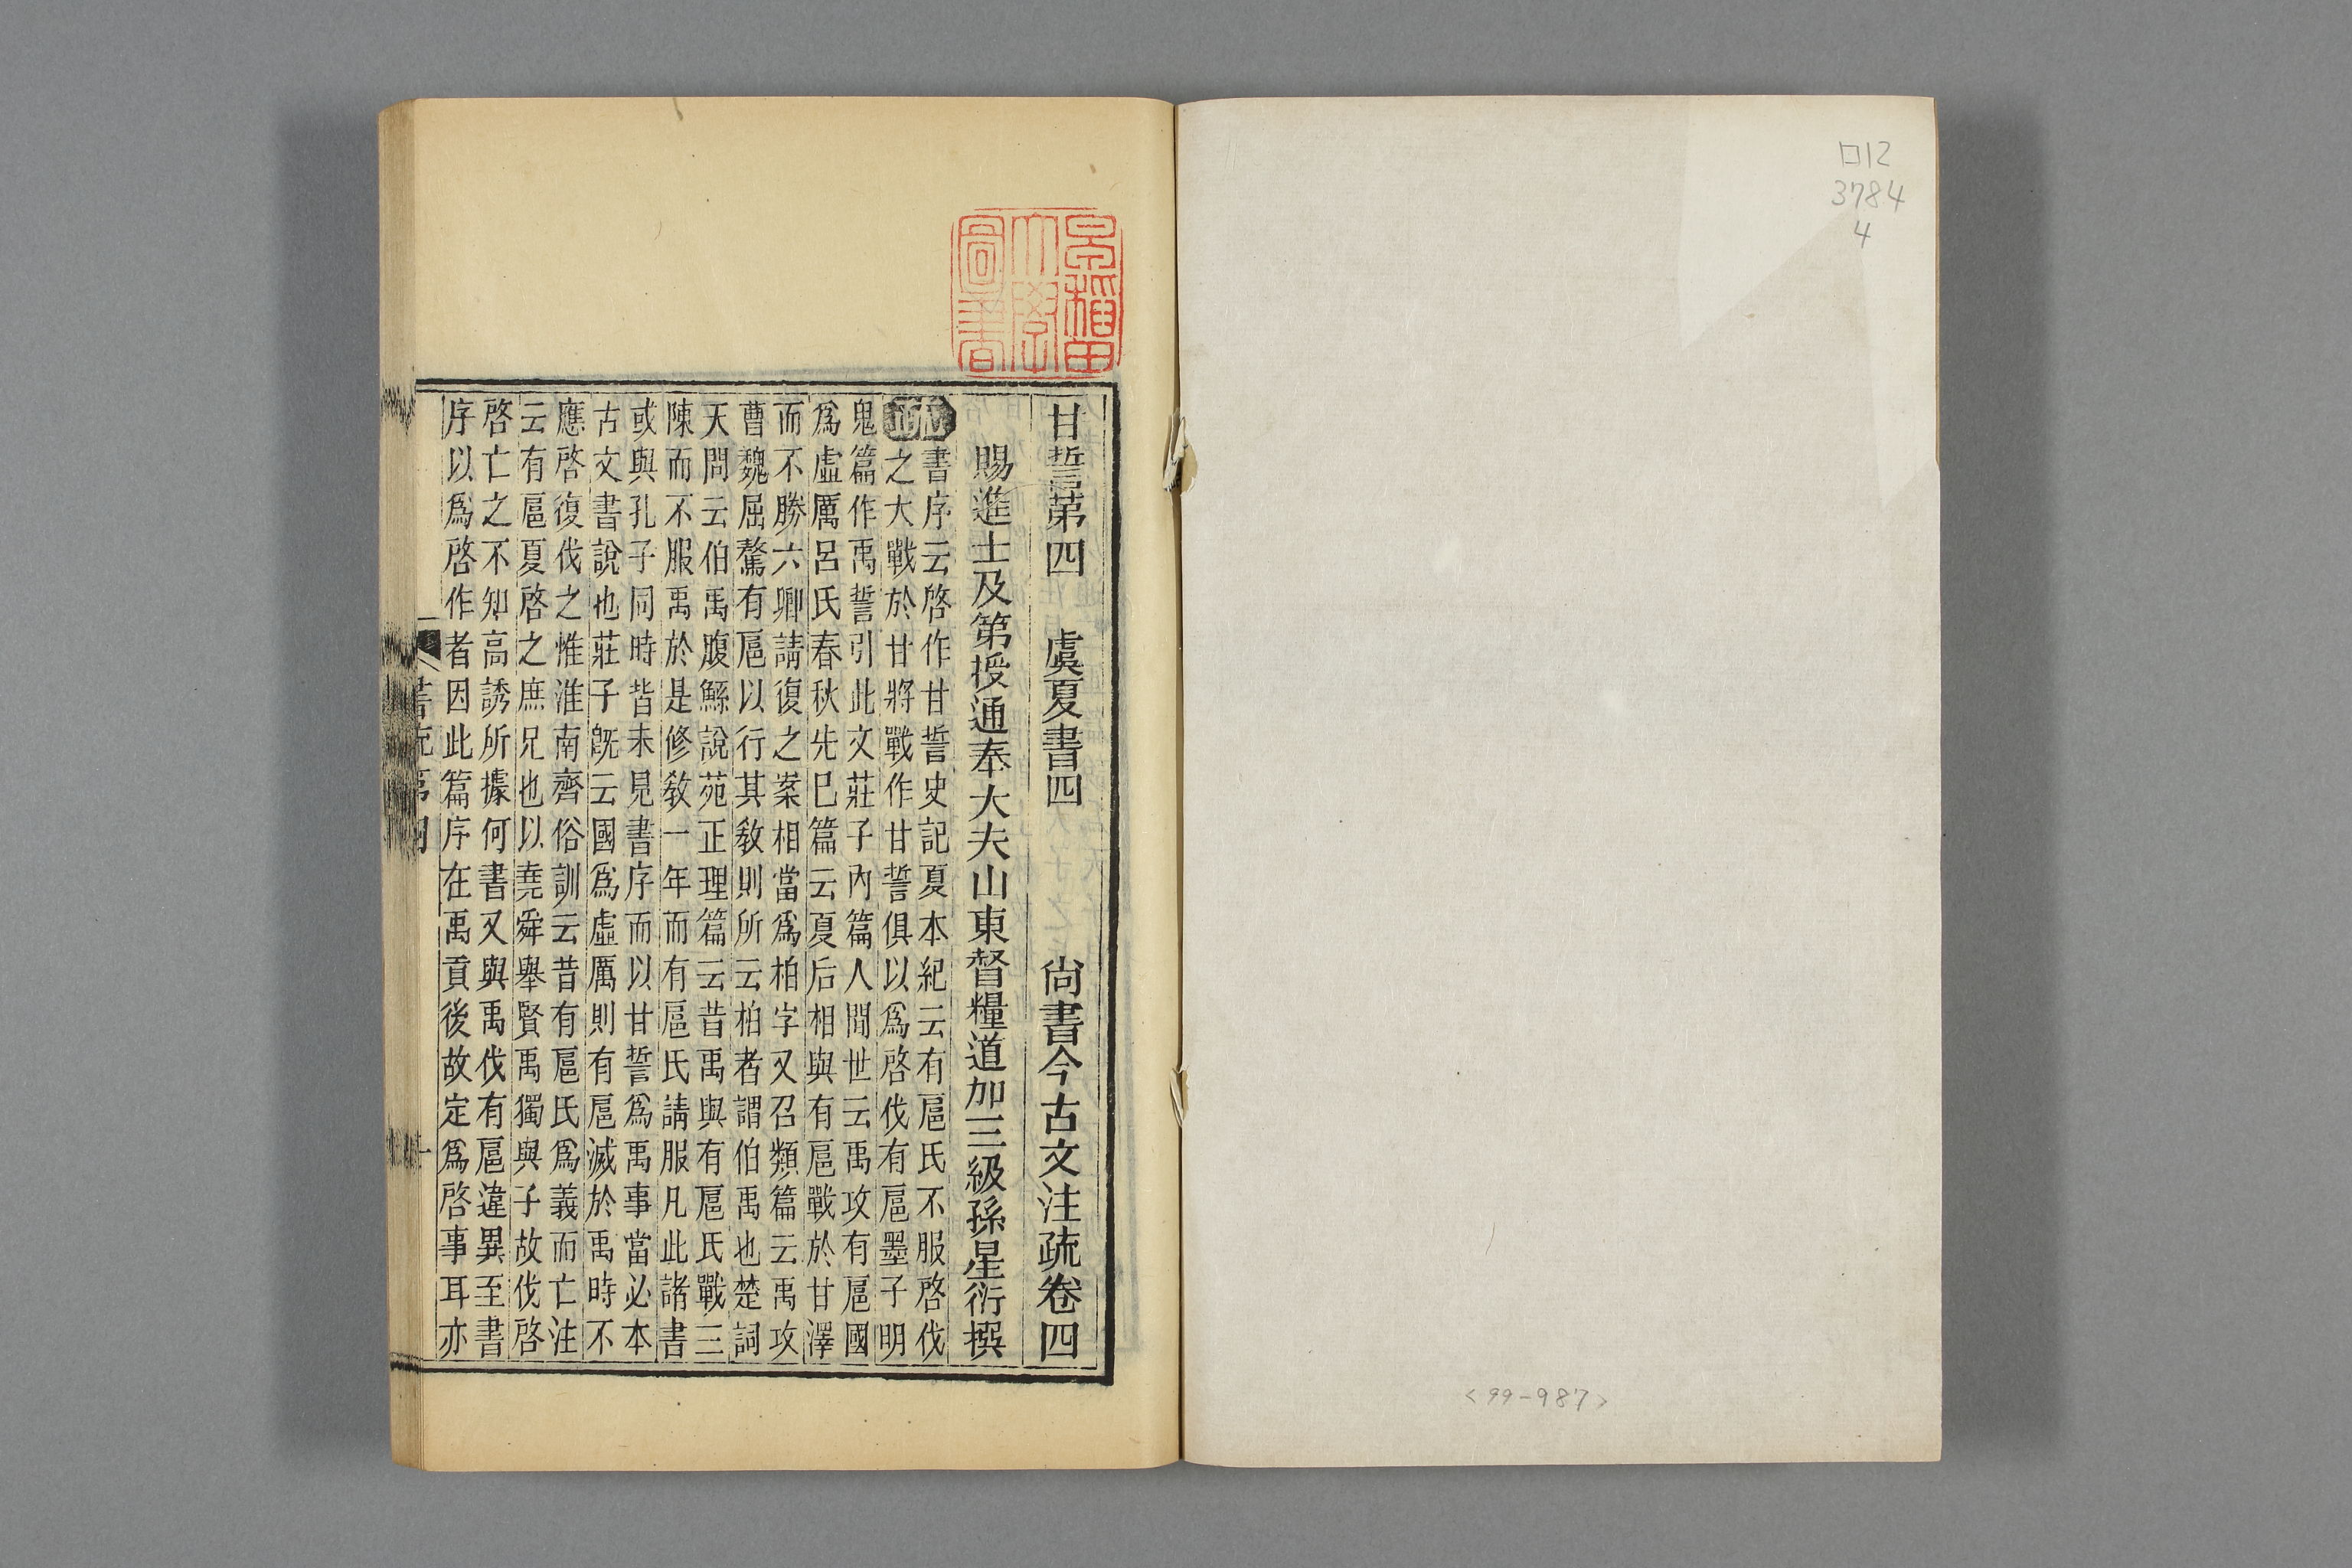 口12
3784
4
<99-987>
早稲田
大學
圖書
甘誓第四 虞夏書四 尚書今古文注疏卷四
賜進士及第授通奉大夫山東督糧道加三級孫星衍撰
疏
書序云啓作甘誓史記夏本紀云有扈氏不服啓伐
之大戰於甘將戰作甘誓俱以爲啓伐有扈墨子明
鬼篇作禹誓引此文莊子內篇人間世云禹攻有扈國
爲虛厲呂氏春秋先巳篇云夏后相與有扈戰於甘澤
而不勝六卿請復之案相當爲柏字又召類篇云禹攻
曹魏屈驁有扈以行其敎則所云柏者謂伯禹也楚詞
天問云伯禹腹鯀說苑正理篇云昔禹與有扈氏戰三
陳而不服禹於是修敎一年而有扈氏請服凡此諸書
或與孔子同時皆未見書序而以甘誓爲禹事當必本
古文書說也莊子旣云國爲虛厲則有扈滅於禹時不
應啓復伐之惟淮南齊俗訓云昔有扈氏爲義而亡注
云有扈夏啓之庶兄也以堯舜舉賢禹獨與子故伐啓
啓亡之不知高誘所據何書又與禹伐有扈違異至書
序以爲啓作者因此篇序在禹貢後故定爲啓事耳亦